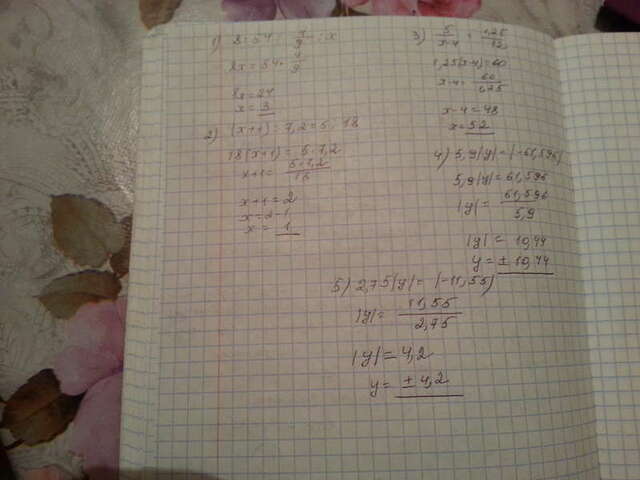 1) 8 : 54 = 4/9 : x
8x = 54 · 4/9
8x = 24
x = 3
2) (x+1) : 7,2 = 5 : 18
18(x+1) = 5 · 7,2
x+1 = 5·7,2/18
x+1 = 2
x = 2-1
x = 1
3) 5/x-4 = 1,25/12
1,25(x-4) = 60
x-4 = 60/1,25
x-4 = 48
x = 52
4) 5,9|y| = |-61,596|
5,9|y| = 61,596
|y| = 61,596/5,9
|y| = 10,44
y = ± 10,44
5) 2,75|y| = |-11,55|
|y| = 11,55/2,75
|y| = 4,2
y = ± 4,2